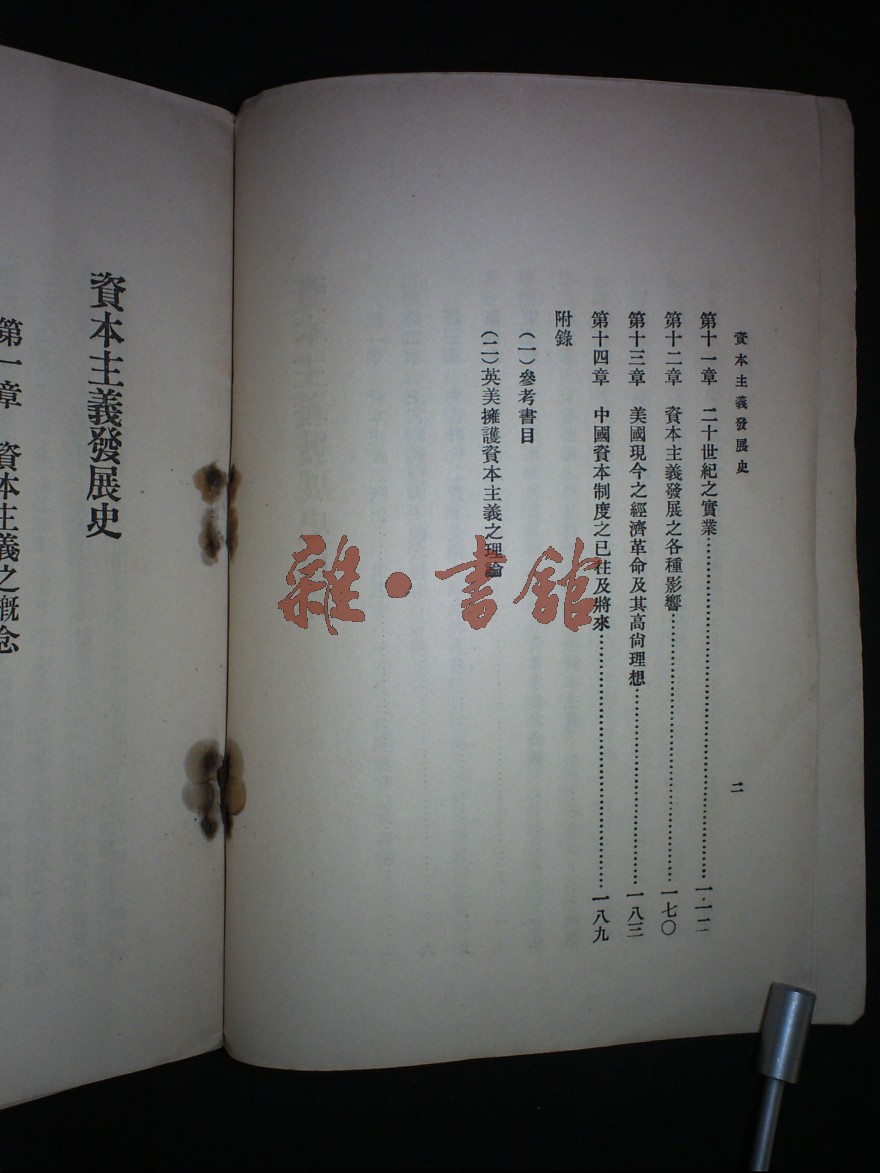 資本主義發展史
二
第十一章　二十世紀之實業……………………
第十二章　資本主義發展之各種影響……………………一七〇
第十三章　美國現今之經濟革命及其高尙理想……………………一八三
第十四章　中國資本制度之已往及將來……………………一八九
附錄
(一)參考書目
(二)英美擁護資本主義之理論
資本主義發展史
第一章　資本主義之概念
雜・書館